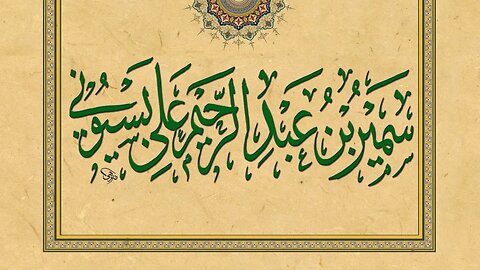 سَمِيْرُ بْنُ عَبْدِ الرَّحِيْمِ عَلِي بَسْيُوْنِي